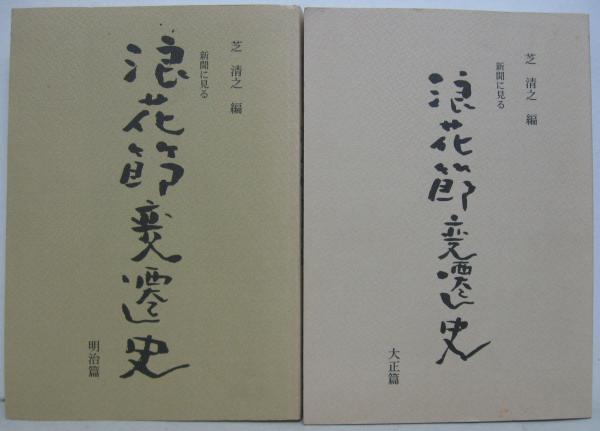 芝 清之 編
新聞に見る
浪花節変遷史
明治篇
芝 清之 編
新聞に見る
浪花節変遷史
大正篇